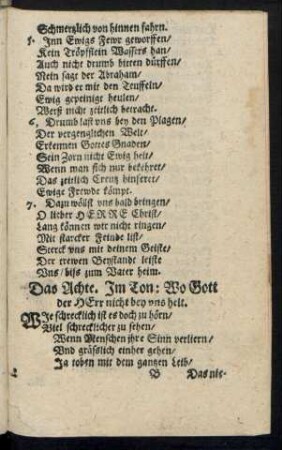 Schmertzlich von hinnen fahrn.
5. Inn Ewigs Fewr geworffen/
Kein Tröpfflein Wassers han/
Auch nicht drumb bitten dürffen/
Nein sagt der Abraham/
Da wird er mit den Teuffeln/
Ewig gepeinigt heulen/
Werß nicht zeitlich betracht.
6. Drumb last vns bey den Plagen/
Der vergenglichen Welt/
Erkennen Gottes Gnaden/
Sein Zorn nicht Ewig helt/
Wenn man sich nur bekehret/
Das zeitlich Creutz hinferet/
Ewige Frewde kömpt.
7. Dazu wöllst vns bald bringen/
O lieber HERRE Christ/
Lang können wir nicht ringen/
Mit starcker Feinde list/
Sterck vns mit deinem Geiste/
Der trewen Beystande leiste
Vns/ biß zum Vater heim.
Das Achte. Im Ton: Wo Gott
der HErr nicht bey vns helt.
WIe schrecklich ist es doch zu hörn/
Viel schrecklicher zu sehen/
Wenn Menschen jhre Sinn verliern/
Vnd gräßlich einher gehen/
Ja toben mit dem gantzen Leib/
B Das nie-